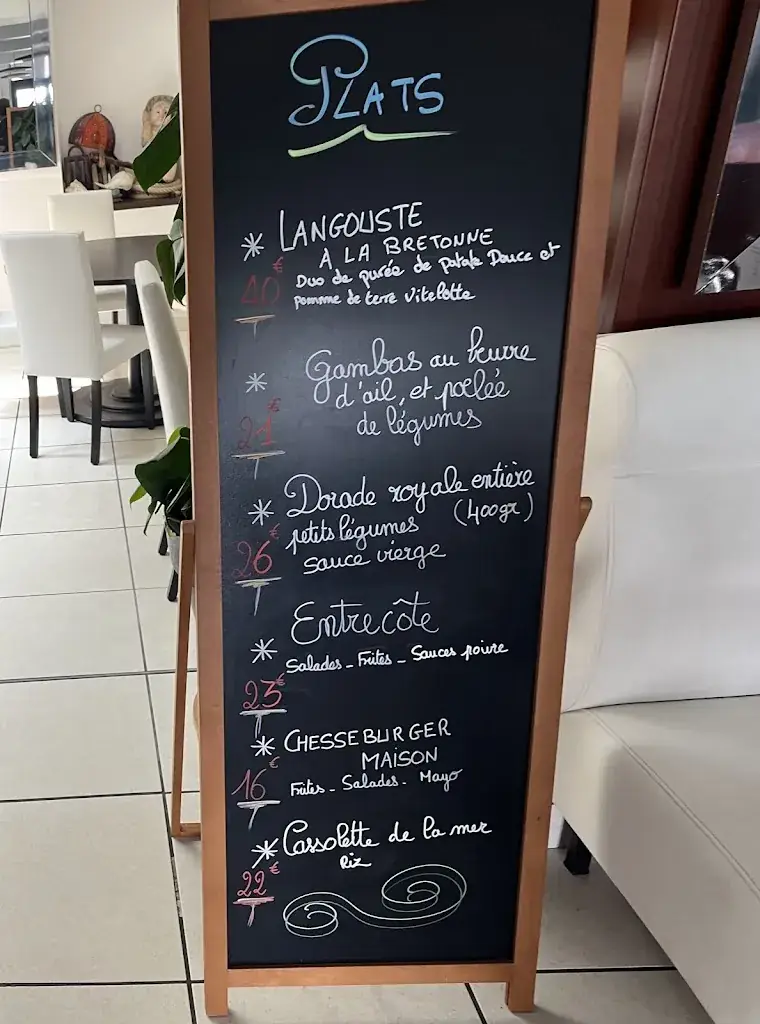 PLATS
* LANGOUSTE
A LA BRETONNE
40€ Duo de purée de patate Douce et
pomme de terre vitelotte
* Gambas au beurre
d'ail, et poêlée
de légumes
€
* Dorade royale entière
petits légumes (400gr)
26€ sauce vierge
Entrecôte
* Salades - Frites - Sauces poivre
23€
* CHESSEBURGER
MAISON
16€ Frites - Salades - Mayo
* Cassolette de la mer
Riz
22€